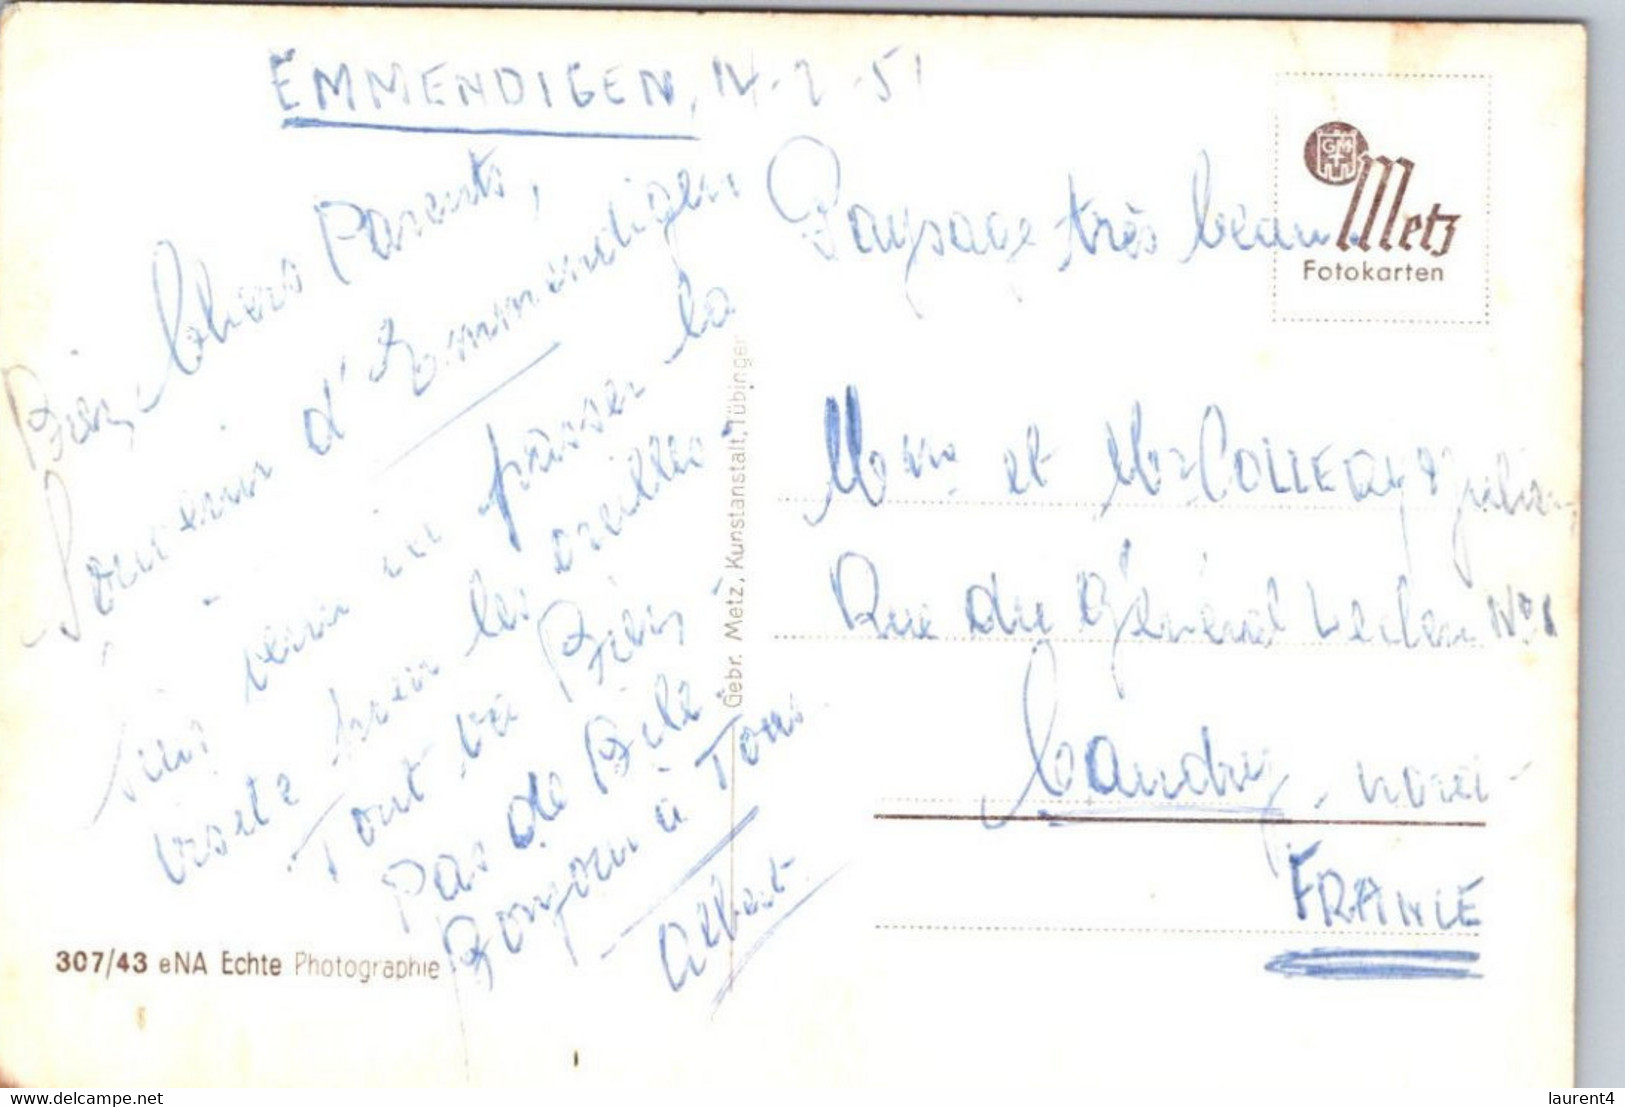 EMMENDIGEN, 14-2-51
Bien Chers Parents,
Souvenir d'Emmendigen
Suis venu ici passer la
visite pour les oreilles.
Tout va Bien
Pas de Bile
Bonjour à Tous.
Albert.
Paysage très beau
GM
Metz
Fotokarten
Gebr. Metz, Kunstanstalt, Tübingen
Mme et Mr
Rue du Général Leclerc
Caudry
FRANCE
307/43 eNA Echte Photographie
http://www.delcampe.net
laurent4